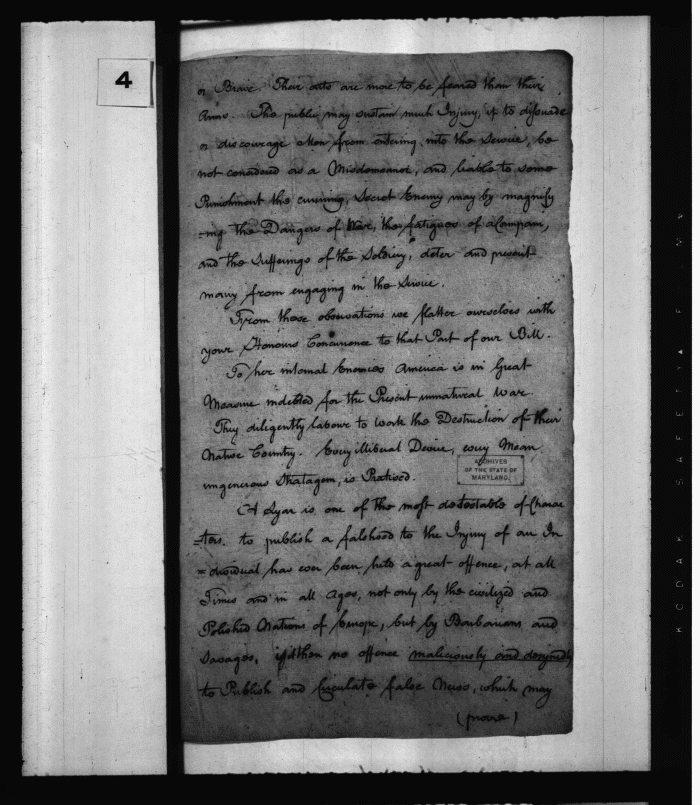 4
or Brave. Their arts are more to be feared than their
Arms. The public may sustain much Injury, if to dissuade
or discourage Men from entering into the Service, be
not considered as a Misdemeanor, and liable to some
Punishment the cunning, Secret Enemy may by magnify
=ing the Dangers of War, the fatigues of a Campain,
and the Sufferings of the Soldiery, deter and prevent
many from engaging in the Service.
From these observations we flatter ourselves with
your Honours Concurrence to that Part of our Bill.
To her internal Enemies America is in Great
Measure indebted for the Present unnatural War.
They diligently labour to work the Destruction of their
Native Country. Every illiberal Device, every Mean
ungenerous Stratagem, is Practised.
ARCHIVES
OF THE STATE OF
MARYLAND.
A Lyar is one of the most detestable of Charac
=ters. to publish a falshood to the Injury of an In
=dividual has ever been held a great offence, at all
Times and in all Ages, not only by the civilized and
Polished Nations of Europe, but by Barbarians and
Savages, if then no offence maliciously and designedly
to Publish and Circulate false News, which may
(prove)
KODAK SAFETY FILM